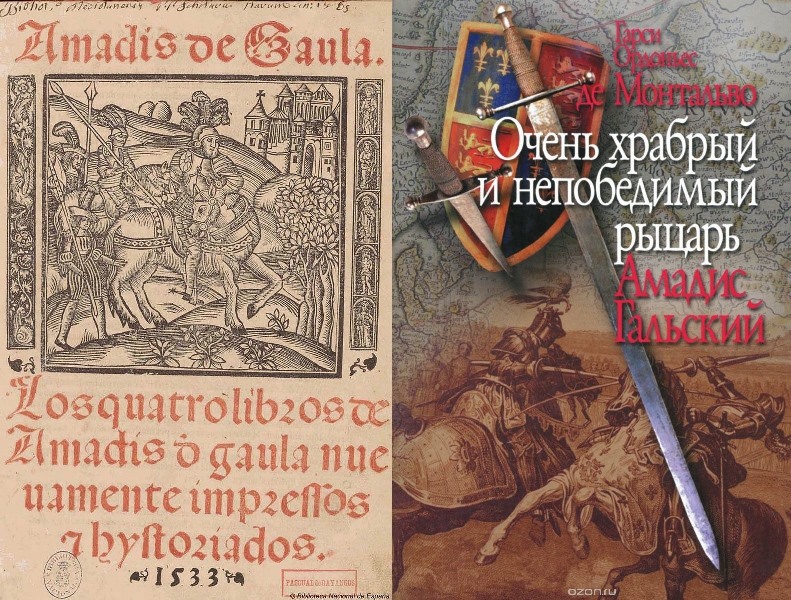 Amadis de Gaula.
Los quatro libros de
Amadis d̄ gaula nue
uamente impressos
⁊ hystoriados.
1533
PASCUAL DE GAYANGOS
© Biblioteca Nacional de España
Гарси
Ордоньес
де Монтальво
Очень храбрый
и непобедимый
рыцарь
Амадис
Гальский
ozon.ru